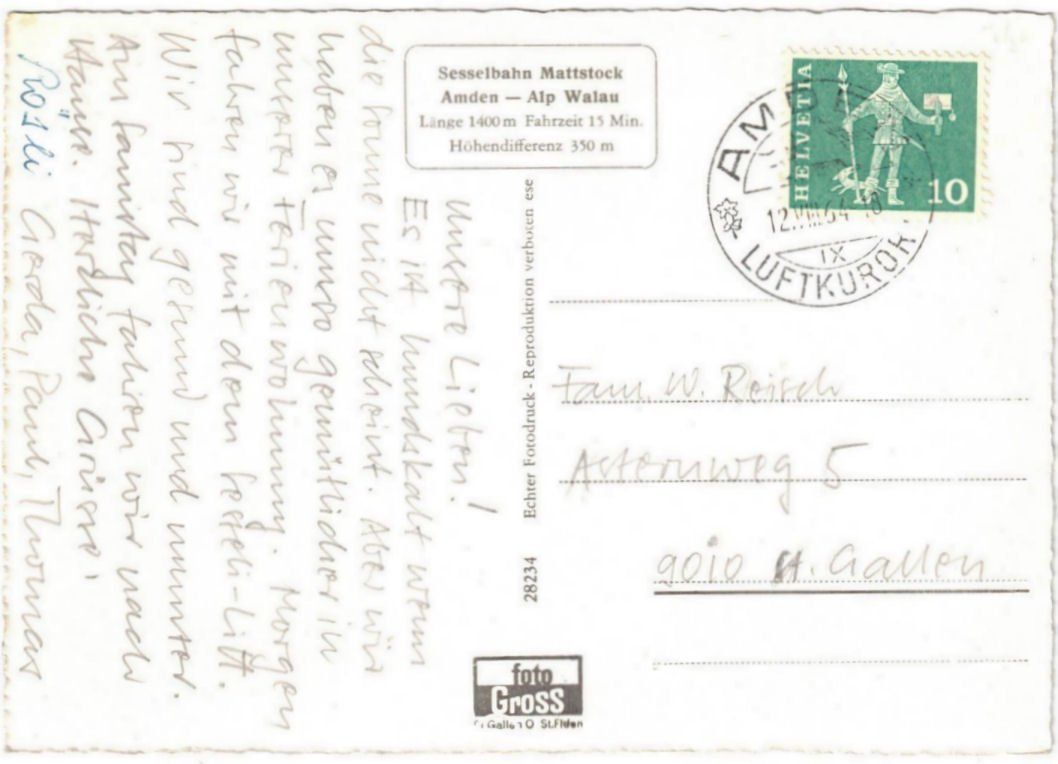 Sesselbahn Mattstock
Amden — Alp Walau
Länge 1400 m Fahrzeit 15 Min.
Höhendifferenz 350 m
Unsere Lieben!
Es ist hundskalt wenn
die Sonne nicht scheint. Aber wir
haben es umso gemütlicher in
unserer Ferienwohnung. Morgen
fahren wir mit dem Sesseli-Lift.
Wir sind gesund und munter.
Am Samstag fahren wir nach
Hause. Herzliche Grüsse,
Rösli Gerda, Paul, Thomas
28234 Echter Fotodruck - Reproduktion verboten ese
HELVETIA
10
AMDEN
12.VIII.64
IX
LUFTKURORT
Fam. W. Reisch
Asternweg 5
9010 St. Gallen
foto
Gross
St Gallen O St.Fiden